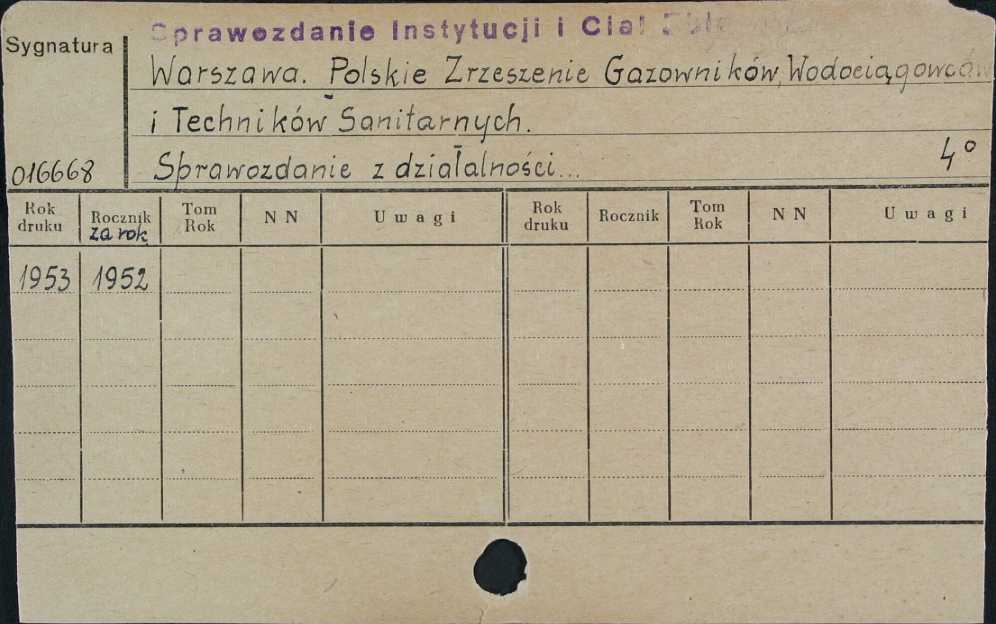 Sprawozdanie Instytucji i Ciał
Sygnatura
Warszawa. Polskie Zrzeszenie Gazowników, Wodociągowców
i Techników Sanitarnych.
016668
Sprawozdanie z działalności...
4°
Rok druku
Rocznik za rok
Tom Rok
N N
Uwagi
Rok druku
Rocznik
Tom Rok
N N
Uwagi
1953 1952